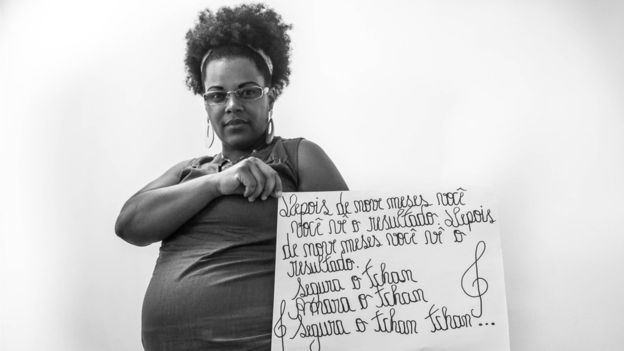 Depois de nove meses você
você vê o resultado. Depois
de nove meses você vê o
resultado.
Segura o tchan
Amara o tchan
Segura o tchan tchan...